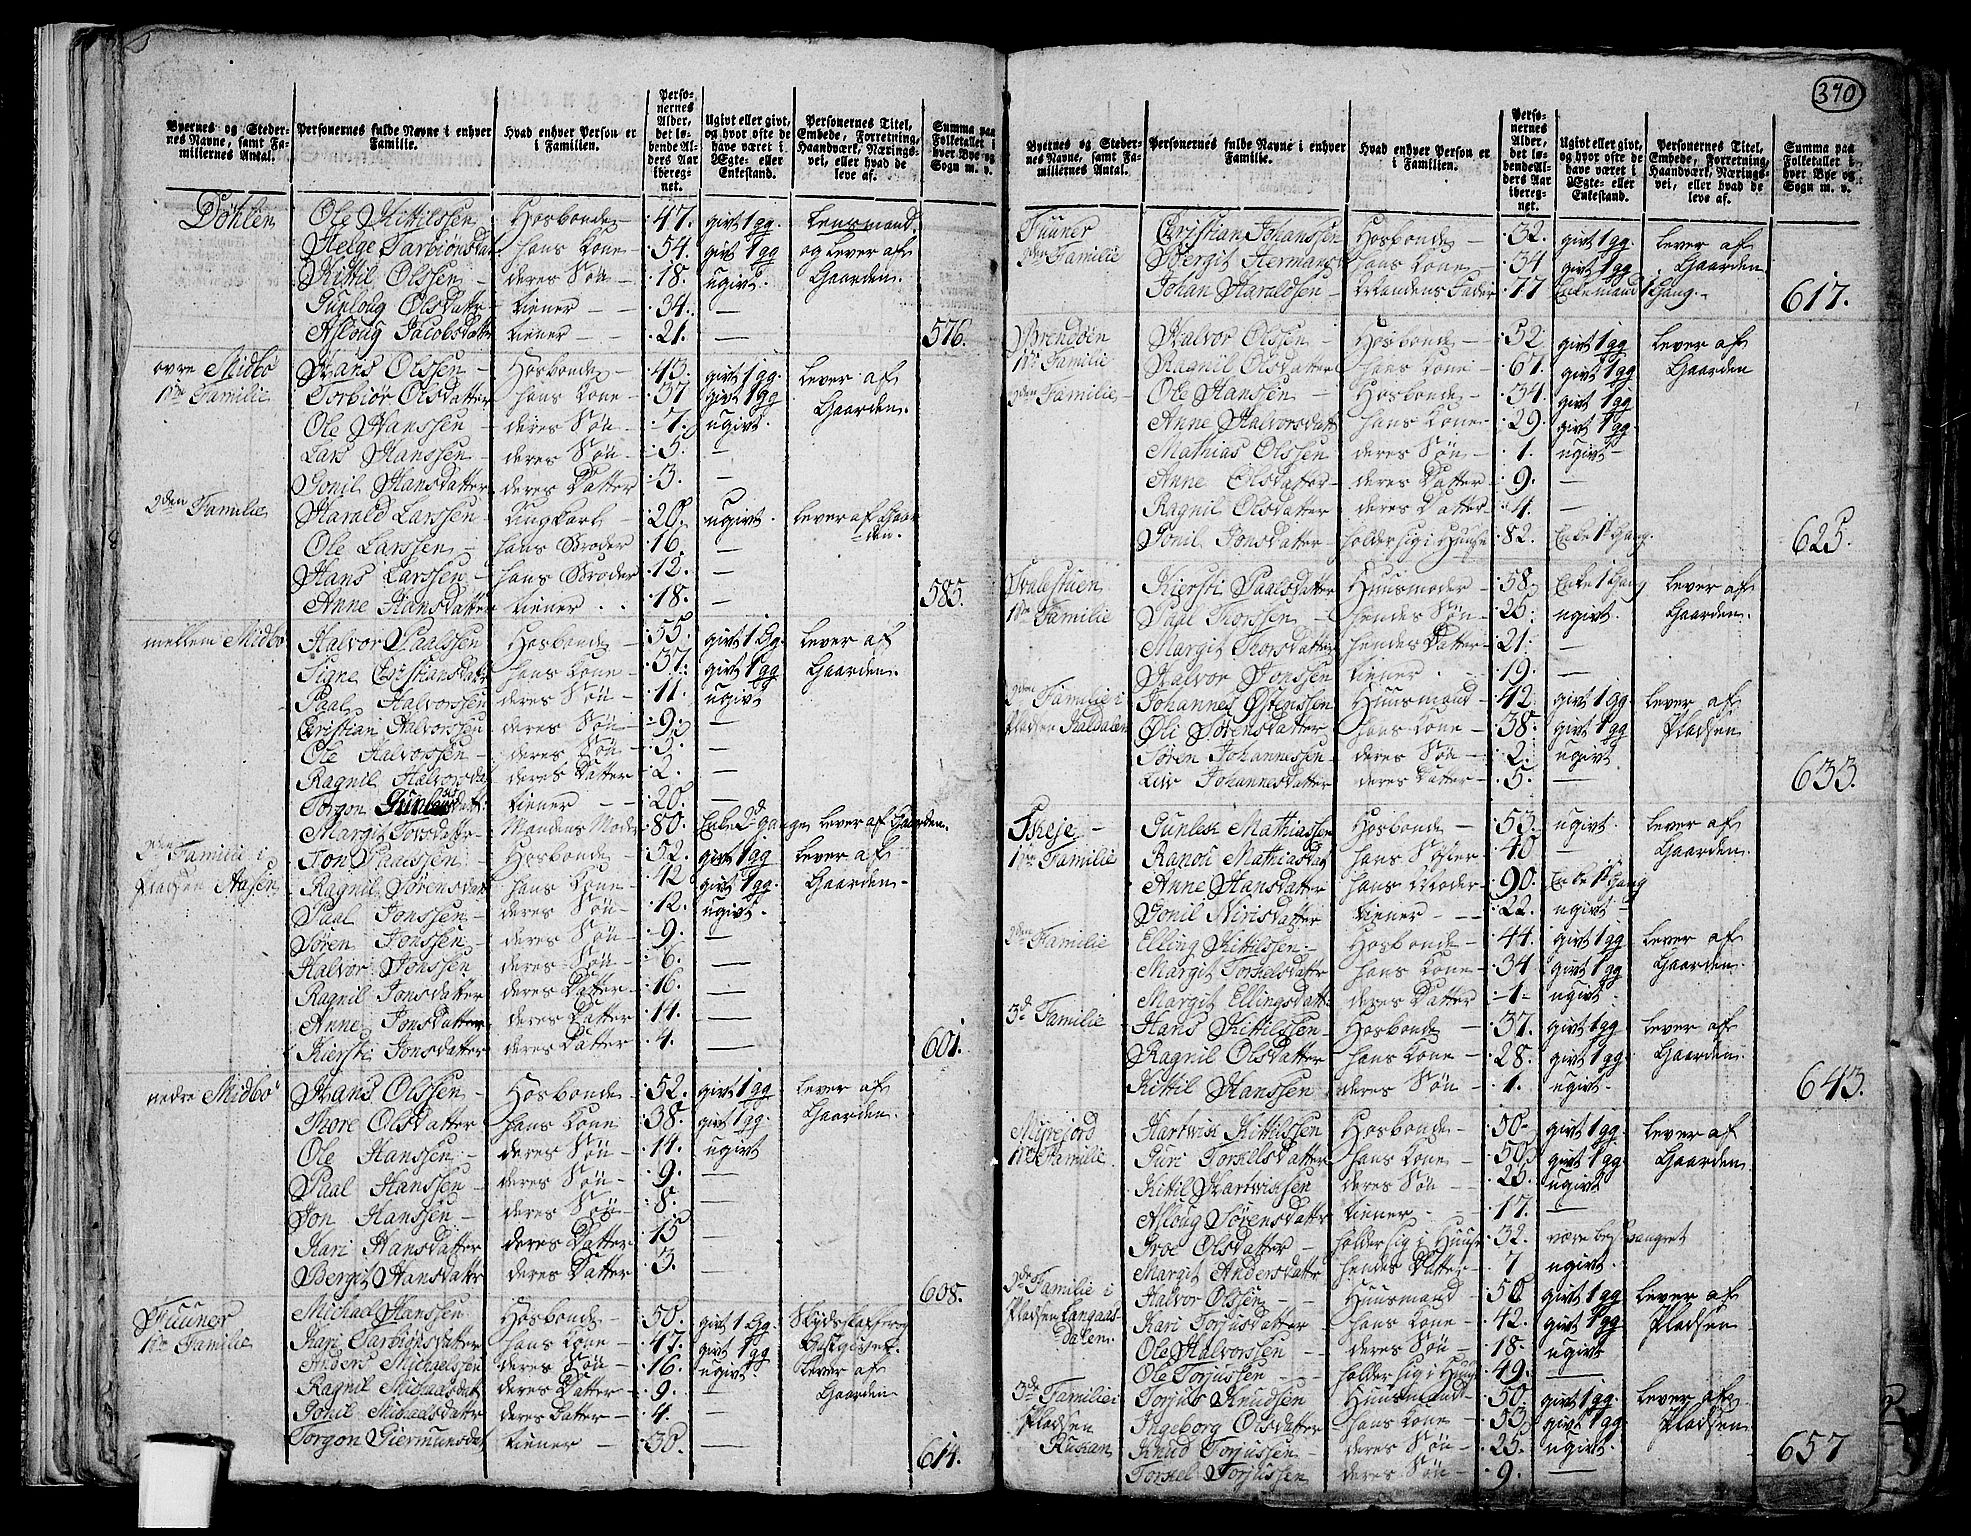 390
Byernes og Stedernes Navne, samt Familiernes Antal. | Personernes fulde Navne i enhver Familie. | Hvad enhver Person er i Familien. | Personernes Alder, det løbende Alders Aar iberegnet. | Ugivt eller givt, og hvor ofte de have været i Ægte- eller Enkestand. | Personernes Titel, Embede, Forretning, Haandværk, Næringsvei, eller hvad de leve af. | Summa paa Folketallet i hver Bye og Sogn m. v.
Dohlen | Ole Kittilssen | Hosbonde | 47. | givt 1 gg | Lensmand.
Helge Tarbiönsdat | hans Kone | 54. | givt 1 gg | og lever af
Kittil Olssen | deres Søn | 18. | ugivt. | Gaarden.
Gunloug Olsdattr | tiener | 34. | —
Asloug Jacobsdattr | tiener | 21. | — | 576.
øvre Midbö | Hans Olssen | Hosbonde | 43. | givt 1 gg. | Lever af
1ste Familie | Torbiör Olsdatter | hans Kone | 37 | givt 1 gg | Gaarden.
Ole Hanssen | deres Søn | 7. | ugivt.
Lars Hanssen | deres Søn | 5. | —
Gonil Hansdatter | deres Datter | 3. | —
2den Familie | Harald Larssen | Ungkarl | 20. | ugivt. | lever af Gaarden.
Ole Larssen | hans Broder | 16. | —
Hans Larssen | hans Broder | 12. | —
Anne Hansdatter | tiener | 18. | — | 585.
mellem Midbö | Halvor Paalssen | Hosbonde | 55. | givt 1 Gg. | Lever af
Signe Christiansdattr | hans Kone | 37. | givt 1 gg | Gaarden.
Paal Halvorssen | deres Søn | 11. | ugivt
Christian Halvorssen | deres Søn | 9. | —
Ole Halvorssen | deres Søn | 5. | —
Ragnil Halvorsdat | deres Datter | 2. | —
Torgon | tiener | 20. | —
Margit Torsdattr | Mandens Moder | 80. | Enke 2d gange | lever af Gaarden.
2den Familie i | Jon Paalssen | Hosbonde | 52. | givt 1 gg | lever af
Pladsen Aasen | Ragnil Sörensdat | hans Kone | 42 | givt 1 gg. | Gaarden
Paal Jonssen | deres Søn | 12. | ugivt.
Sören Jonssen | deres Søn | 9. | —
Halvor Jonssen | deres Søn | 6. | —
Ragnil Jonsdatter | deres Datter | 16. | —
Anne Jonsdatter | deres Datter | 14. | —
Kiersti Jonsdatter | deres Datter | 4. | — | 601.
nedre Midbö | Hans Olssen | Hosbonde | 52. | givt 1 gg | Lever af
Tore Olsdatter | hans Kone | 38. | givt 1 gg. | Gaarden.
Ole Hanssen | deres Søn | 14. | ugivt
Paal Hanssen | deres Søn | 9. | —
Jon Hanssen | deres Søn | 8. | —
Kari Hansdatter | deres Datter | 15 | —
Bergit Hansdattr | deres Datter | 3. | — | 608.
Tuuner | Michael Hanssen | Hosbonde | 50. | givt 1 Gg. | Skydsskaffer og
1ste Familie | Kari Tarbiönsdatter | hans Kone | 47. | givt 1 gg | Gastgiver.
Anders Michaelssen | deres Søn | 16. | ugivt. | Lever af
Ragnil Michaelsdat | deres Datter | 9. | — | Gaarden
Gonil Michaelsdattr | deres Datter | 4. | —
Torgon Giermunsdat | tiener | 30. | — | 614.
Byernes og Stedernes Navne, samt Familiernes Antal. | Personernes fulde Navne i enhver Familie. | Hvad enhver Person er i Familien. | Personernes Alder, det løbende Alders Aar iberegnet. | Ugivt eller givt, og hvor ofte de have været i Ægte- eller Enkestand. | Personernes Titel, Embede, Forretning, Haandværk, Næringsvei, eller hvad de leve af. | Summa paa Folketallet i hver Bye og Sogn m. v.
Tuuner | Christian Johanssen | Hosbonde | 32. | givt 1 gg. | lever af
2den Familie | Bergit Hermans | hans Kone | 34 | givt 1 gg | Gaarden
Johan Haraldsen | Mandens Fader | 77 | Enkemand 1 Gang. | 617.
Brendöen | Halvor Olssen | Hosbonde | 52 | givt 1 gg | Lever af
1ste Familie | Ragnil Olsdatter | hans Kone | 61. | givt 1 gg | Gaarden
2den Familie | Ole Hanssen | Hosbonde | 34. | givt 1 gg
Anne Halvorsdatt | hans Kone | 29. | givt 1 gg.
Mathias Olssen | deres Søn | 1. | ugivt
Anne Olsdatter | deres Datter | 9. | —
Ragnil Olsdatter | deres Datter | 4. | —
Gonil Jonsdatter | holder sig i Huuse | 82. | Enke 1 Gang. | 625.
Svalestuen | Kiersti Paalsdatter | Huusmoder | 58. | Enke 1 Gang | lever af
1ste Familie | Paal Torssen | hendes Søn | 25. | ugivt. | Gaarden.
Margit Torsdatter | hendes Datter | 21. | —
Halvor Jonssen | tiener | 19. | —
2den Familie i | Johannes Østenssen | Huusmand | 42. | givt 1 gg | lever af
Pladsen Kaldalen | Oli Sörensdatter | hans Kone | 38. | givt 1 gg | Pladsen
Sören Johannessen | deres Søn | 2. | ugivt
Live Johannesdatter | deres Datter | 5. | — | 633.
Skeje | Gunlek Mathiassen | Hosbonde | 53. | ugivt. | lever af
1ste Familie | Ranoli Mathiasdat | hans Söster | 40 | — | Gaarden.
Anne Hansdatter | hans Moder | 90. | Enke 1 Gang
Gonil Nirisdatter | tiener | 22. | ugivt
2den Familie | Elling Kittilssen | Hosbonde | 44. | givt 1 gg | Lever af
Margit Torkelsdattr | hans Kone | 34 | givt 1 gg | Gaarden.
Margit Ellingsdatt | deres Datter | 1 | ugivt.
3d Familie | Hans Kittilssen | Hosbonde | 37. | givt 1 gg | Lever af
Ragnil Olsdatter | hans Kone | 28. | givt 1 gg. | Gaarden
Kittil Hanssen | deres Søn | 1. | ugivt. | 643.
Myrejord | Hartwik Kittilssen | Hosbonde | 50 | givt 1 gg. | lever af
1ste Familie. | Guri Torkelsdatter | hans Kone | 50. | givt 1 gg. | Gaarden.
Kittil Hartwikssen | deres Søn | 25. | ugivt
Asloug Sörensdattr | tiener | 17. | —
Groe Olsdatter | holder sig i Huuse | 32.
Margit Andersdattr | hendes Datter | 7 | ugivt.
2den Familie i | Halvor Olssen | Huusmand | 50 | givt 1 gg | lever af
Pladsen Langaasdalen. | Kari Torjusdatter | hans Kone | 42. | givt 1 gg. | Pladsen
Ole Halvorssen | deres Søn | 18. | ugivt
Ole Torjussen | holder sig i Huuse | 49. | —
3de Familie i | Torjus Knudsen | Huusmand | 50. | givt 1 gg | lever af
Pladsen | Ingeborg Olsdatter | hans Kone | 53. | givt 1 gg | Pladsen
Ruskan | Knud Torjussen | deres Søn | 25. | ugivt.
Torkel Torjussen | deres Søn | 9. | — | 657